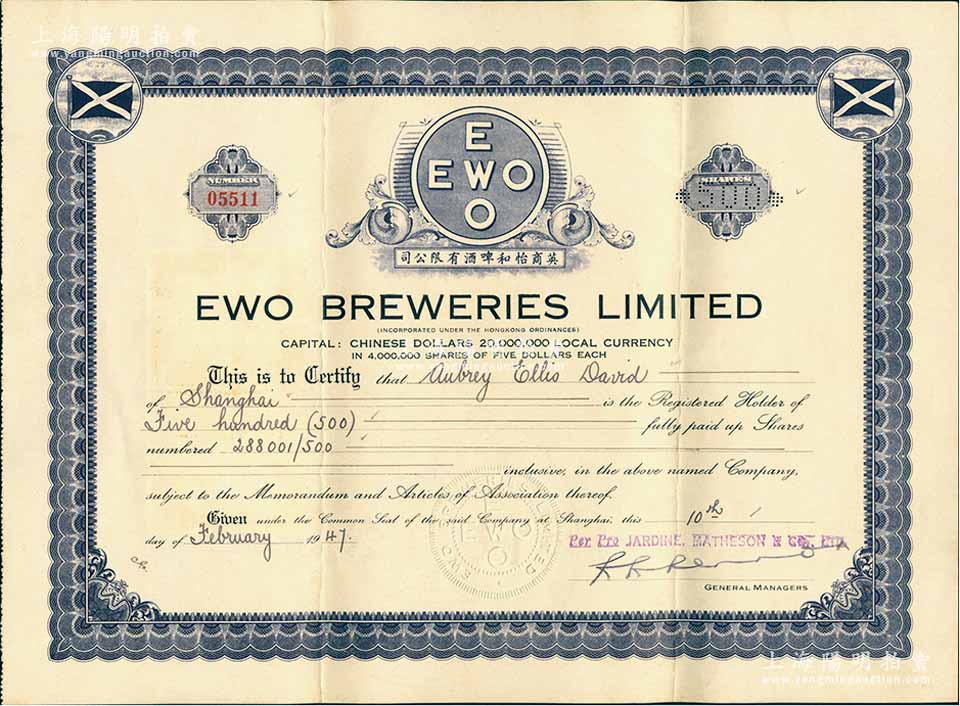 上海陽明拍賣
www.yangmingauction.com
NUMBER
05511
E
EWO
O
SHARES
500
司公限有酒啤和怡商英
EWO BREWERIES LIMITED
(INCORPORATED UNDER THE HONGKONG ORDINANCES)
CAPITAL: CHINESE DOLLARS 20,000,000 LOCAL CURRENCY
IN 4,000,000 SHARES OF FIVE DOLLARS EACH
This is to Certify that Aubrey Ellis David
of Shanghai is the Registered Holder of
Five hundred (500) fully paid up Shares
numbered 288001/500
inclusive, in the above named Company,
subject to the Memorandum and Articles of Association thereof.
Given under the Common Seal of the said Company at Shanghai, this 10th
day of February 1947.
Per Pro JARDINE, MATHESON & CO., LTD.
GENERAL MANAGERS
EWO
O
上海陽明拍賣
www.yangmingauction.com